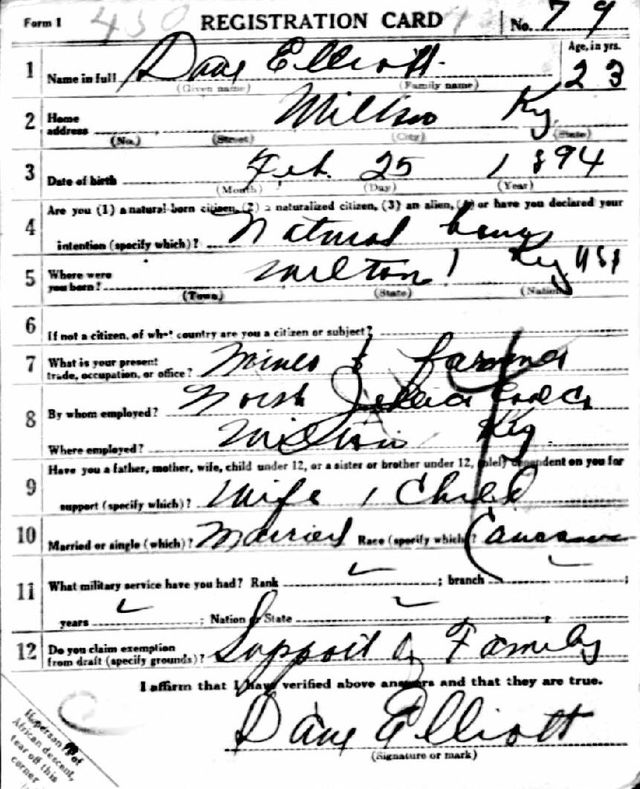 Form 1 430 REGISTRATION CARD No. 79
Age, in yrs.
1 Name in full Dave Elliott 23
(Given name) (Family name)
2 Home address Milton Ky
(No.) (Street) (City) (State)
3 Date of birth Feb. 25 1894
(Month) (Day) (Year)
4 Are you (1) a natural-born citizen, (2) a naturalized citizen, (3) an alien, (4) or have you declared your
intention (specify which)? Natural born
5 Where were you born? Milton Ky USA
(Town) (State) (Nation)
6 If not a citizen, of what country are you a citizen or subject?
7 What is your present trade, occupation, or office? Miner & farmer
8 By whom employed? North Jellico Coal Co
Where employed? Ky.
9 Have you a father, mother, wife, child under 12, or a sister or brother under 12, solely dependent on you for
support (specify which)? Wife 1 Child
10 Married or single (which)? Married Race (specify which)? Caucasian
11 What military service have you had? Rank ; branch ;
years ; Nation or State
12 Do you claim exemption from draft (specify grounds)? Support of Family
I affirm that I have verified above answers and that they are true.
Dave Elliott
(Signature or mark)
If person is of
African descent,
tear off this
corner